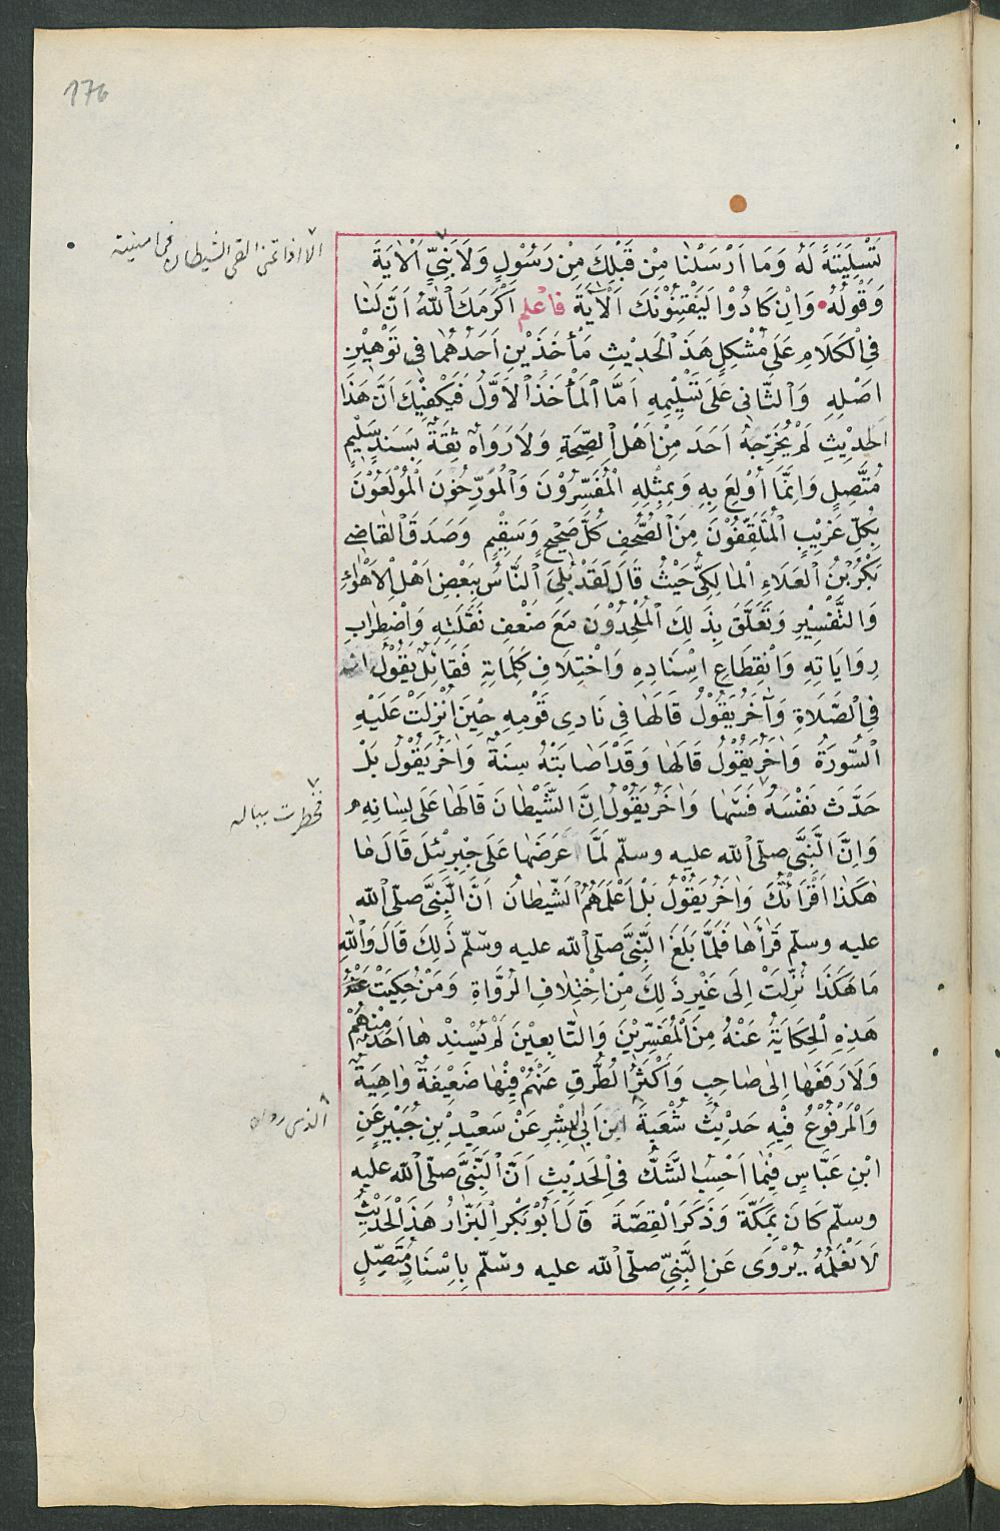 176
تَسْلِيَتَةً لَهُ وَمَا اَرْسَلْنَا مِنْ قَبْلِكَ مِنْ رَسُوْلٍ وَلَا نَبِىٍّ اَلْاٰيَةَ
الا اذا تمنى القى الشيطان فى امنيته
وَقَوْلُهُ • وَاِنْ كَادُوْا لَيَفْتِنُوْنَكَ اَلْاٰيَةَ فَاعْلَم اَكْرَمَكَ اللّٰهُ اَنَّ لَنَا
فِى الْكَلَامِ عَلَى مُشْكِلِ هَذَ الْحَدِيْثِ مَأْخَذَيْنِ اَحَدُهُمَا فِى تَوْهِيْنِ
اَصْلِهِ وَالثَّانِى عَلَى تَسْلِيْمِهِ اَمَّا الْمَأْخَذُ الْاَوَّلُ فَيَكْفِيْكَ اَنَّ هَذَا
الْحَدِيْثِ لَمْ يُخَرِّجْهُ اَحَدَ مِنْ اَهْلِ الصِّحَةِ وَلَا رَوَاهُ ثِقَةٌ بِسَنَدٍ سَلِيْمٍ
مُتَّصِلٍ وَاِنَّمَا أُوْلِعَ بِهِ وَبِمِثْلِهِ الْمُفَسِّرُوْنَ وَالْمُوَرِّخُوْنَ الْمُوْلَعُوْنَ
بِكُلِّ غَرِيْبٍ الْمُتَلَقِّفُوْنَ مِنَ الصُّحُفِ كُلَّ صَحِيْحٍ وَسَقِيْمٍ وَصَدَقَ الْقَاضِى
بَكْرُ بْنُ الْعَلَاءِ الْمَالِكِىُّ حَيْثُ قَالَ لَقَدْ بُلِىَ النَّاسُ بِبَعْضِ اَهْلِ الْاَهْوَاءِ
وَالتَّفْسِيْرِ وَتَعَلَّقَ بِذَلِكَ الْمُلْحِدُوْنَ مَعَ ضَعْفِ نَقَلَتِهِ وَاضْطِرَابِ
رِوَايَاتِهِ وَانْقِطَاعِ اِسْنَادِهِ وَاخْتِلَافِ كَلِمَاتِهِ فَقَائِلٌ يَقُوْلُ انه
فِى الصَّلَاةِ وَآخَرُ يَقُوْلُ قَالَهَا فِى نَادِى قَوْمِهِ حِيْنَ اُنْزِلَتْ عَلَيْهِ
السُّوْرَةُ وَاٰخَرُ يَقُوْلُ قَالَهَا وَقَدْ اَصَابَتْهُ سِنَةٌ وَاٰخَرُ يَقُوْلُ بَلْ
حَدَّثَ نَفْسَهُ فَسَهَا وَاٰخَرُ يَقُوْلُ اِنَّ الشَّيْطَانَ قَالَهَا عَلَى لِسَانِهِ
فخطرت بباله
وَاِنَّ النَّبِىَّ صلّى اللّٰه عليه وسلّم لَمَّا عَرَضَهَا عَلَى جِبْرِيْئِلَ قَالَ مَا
هٰكَذَا اَقْرَأْتُكَ وَاٰخَرُ يَقُوْلُ بَلْ اَعْلَمَهُمُ الشَّيْطَانُ اَنَّ النَّبِىَّ صلّى اللّٰه
عليه وسلّم قَرَأَهَا فَلَمَّا بَلَغَ النَّبِىَّ صلّى اللّٰه عليه وسلّم ذَلِكَ قَالَ وَاللّٰهِ
مَا هَكَذَا نُزِّلَتْ اِلَى غَيْرِ ذَلِكَ مِنْ اِخْتِلَافِ الرُّوَاةِ وَمَنْ حُكِيَتْ عَنْهُ
هَذِهِ الْحِكَايَةُ عَنْهُ مِنَ الْمُفَسِّرِيْنَ وَالتَّابِعِيْنَ لَمْ يُسْنِدْهَا اَحَدٌ مِنْهُمْ
وَلَا رَفَعَهَا اِلٰى صَاحِبٍ وَاَكْثَرُ الطُّرُقِ عَنْهُمْ فِيْهَا ضَعِيْفَةٌ وَاهِيَةٌ
وَالْمَرْفُوْعُ فِيْهِ حَدِيْثُ شُعْبَةَ ابن اَبِى بِشْرٍ عَنْ سَعِيْدِ بْنِ جُبَيْرٍ عَنِ
الذى رواه
ابْنِ عَبَّاسٍ فِيْمَا اَحْسِبُ الشَّكُّ فِى الْحَدِيْثِ اَنَّ النَّبِىَّ صلّى اللّٰه عليه
وسلّم كَانَ بِمَكَّةَ وَذَكَرَ الْقِصَّةَ قَالَ اَبُوْ بَكْرِ الْبَزَّارُ هَذَ الْحَدِيْثُ
لَا نَعْلَمُهُ يُرْوَى عَنِ النَّبِىِّ صلّى اللّٰه عليه وسّلم بِاِسْنَادٍ مُتَّصِلٍ